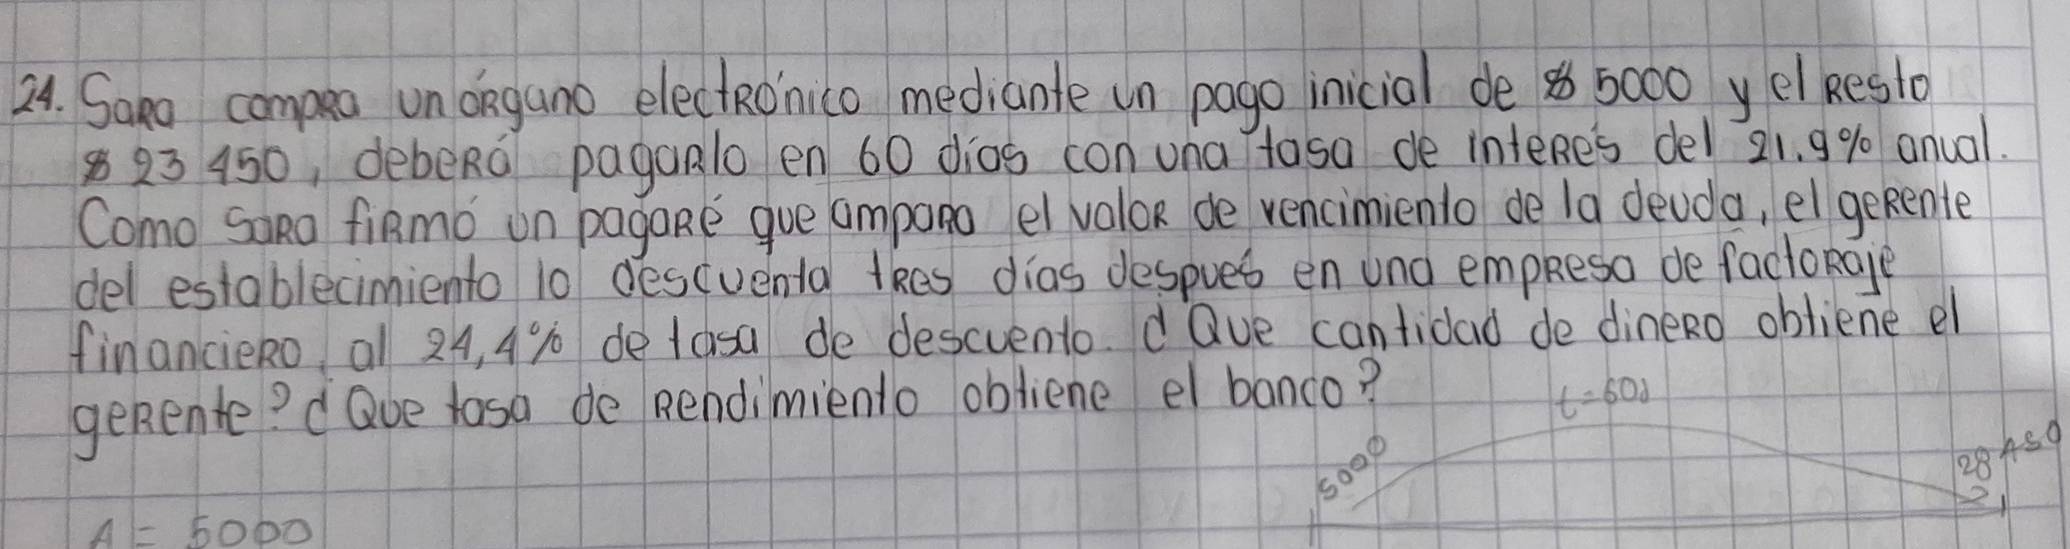 24. Sara compra un órgano electrónico mediante un pago inicial de $ 5000 y el Resto
$ 23 450, deberá pagarlo en 60 días con una tasa de interés del 21.9% anual.
Como Sara firmó un pagaré que ampara el valor de vencimiento de la deuda, el gerente
del establecimiento lo descuenta tres días después en una empresa de factoraje
financiero, al 24,4% de tasa de descuento. ¿Que cantidad de dinero obtiene el
gerente? ¿Que tasa de rendimiento obtiene el banco?
t=60d
5000
28450
A = 5000